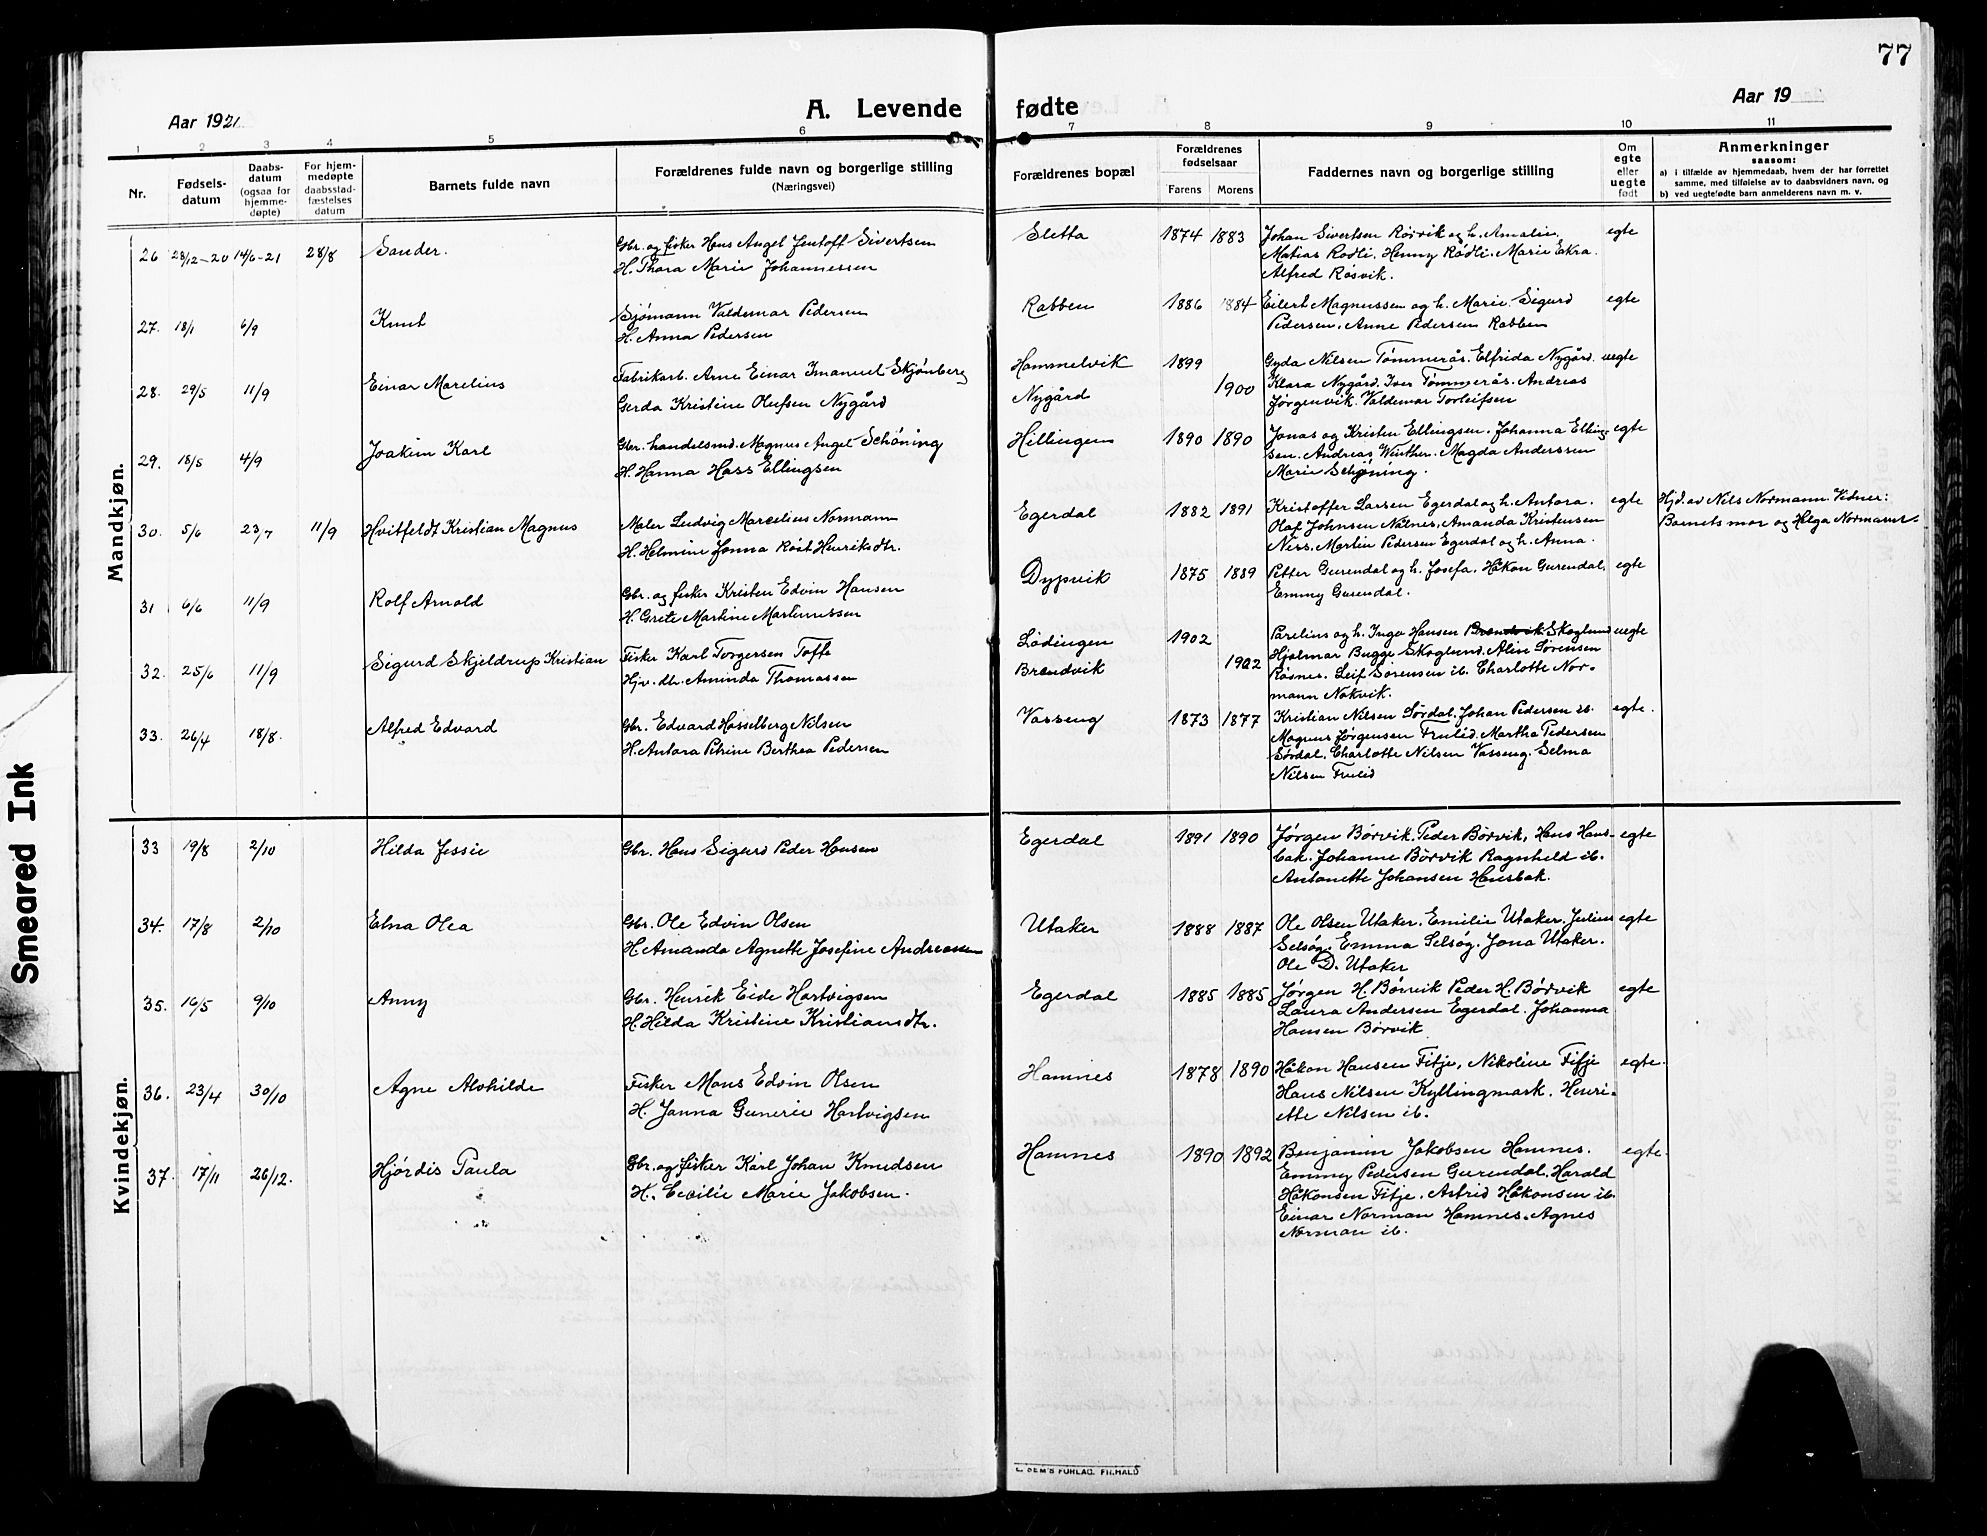 77
Aar 1921
A. Levende fødte
Aar 19
1 2 3 4 5 6 7 8 9 10 11
Nr.
Fødsels-
datum
Daabs-
datum
(ogsaa for
hjemme-
døpte)
For hjem-
medøpte
daabsstad-
fæstelses
datum
Barnets fulde navn
Forældrenes fulde navn og borgerlige stilling
(Næringsvei)
Forældrenes bopæl
Forældrenes
fødselsaar
Farens Morens
Faddernes navn og borgerlige stilling
Om
egte
eller
uegte
født
Anmerkninger
saasom:
a) i tilfælde av hjemmedaab, hvem der har forrettet
samme, med tilføielse av to daabsvidners navn, og
b) ved uegtefødte barn anmelderens navn m. v.
Mandkjøn.
26 28/12-20 14/6-21 28/8 Sander.
Gbr. og fisker Hans Angel Jentoft Sivertsen
H. Thora Marie Johannessen
Sletta 1874 1883
Johan Sivertsen Rösvik og h. Amalie.
Matias Rødli. Henny Rødli. Marie Ekra.
Alfred Rösvik.
egte
27. 18/1 6/9 Knut
Sjømann Valdemar Pedersen
H. Anna Pedersen
Rabben 1886 1884
Eilert Magnussen og h. Marie. Sigurd
Pedersen. Anne Pedersen Rabben
egte
28. 29/5 11/9 Einar Marelius
Fabrikarb. Arne Einar Imanuel Skjønberg
Gerda Kristine Olufsen Nygård
Hammelvik 1899
Nygård 1900
Gyda Nilsen Tømmerås. Elfrida Nygård.
Klara Nygård. Iver Tømmerås. Andreas
Jørgenvik. Valdemar Torleifsen
uegte
29. 18/5 4/9 Joakim Karl
Gbr. handelsmd. Magnus Angel Schöning
H. Hanna Hass Ellingsen
Hillingen 1890 1890
Jonas og Kristen Ellingsen. Johanna Elling-
sen. Andreas Winther. Magda Anderssen
Marie Schöning.
egte
30. 5/6 23/7 11/9 Hvitfeldt Kristian Magnus
Maler Ludvig Marcelius Normann
H. Helmine Jonna Röst Henriksdtr.
Egerdal 1882 1891
Kristoffer Larsen Egerdal og h. Antora.
Olaf Johnsen Nilnes, Amanda Kristensen
Niss. Martin Pedersen Egerdal og h. Anna.
egte
Hjd. av Nils Normann. Vidner:
Barnets mor og Helga Normann.
31 6/6 11/9 Rolf Arnold
Gbr. og fisker Kristen Edvin Hansen
H. Grete Martine Martinussen
Dypvik 1875 1889
Petter Gurendal og h. Josefa. Håkon Gurendal.
Emmy Gurendal.
egte
32. 25/6 11/9 Sigurd Skjeldrup Kristian
Fisker Karl Torgersen Tofte
Hjv. dtr. Aminda Thomassen
Lødingen 1902
Brendvik 1902
Parelius og h. Inga Hansen Brendvik Skoglund
Hjalmar Bugge Skoglund. Alin Sörensen
Rösnes. Leif Sörensen ib. Charlotte Nor-
mann Nakvik.
uegte
33. 26/4 18/8. Alfred Edvard
Gbr. Edvard Hasselberg Nilsen
H. Antora Petrine Berthea Pedersen
Vasseng 1873 1877
Kristian Nilsen Sördal. Johan Pedersen ib.
Magnus Jørgensen Trulid. Martha Pedersen
Sördal. Charlotte Nilsen Vasseng. Selma
Nilsen Trulid
egte.
Kvindekjøn.
33 19/8 2/10 Hilda Jessie
Gbr. Hans Sigurd Peder Hansen
Egerdal 1891 1890
Jørgen Börvik. Peder Börvik, Hans Hans-
bak. Johanne Börvik Ragnhild ib.
Antonette Johansen Hansbak.
egte
34. 17/8 2/10 Edna Olea
Gbr. Ole Edvin Olsen
H. Amanda Agnette Josefine Andreassen
Utaker 1888 1887
Ole Olsen Utaker. Emilie Utaker. Julius
Selsög. Emma Selsög. Jona Utaker.
Ole D. Utaker
egte
35. 16/5 9/10 Anny
Gbr. Henrik Eide Hartvigsen
H. Hilda Kristine Kristiansdtr.
Egerdal 1885 1885
Jørgen H. Börvik Peder H. Börvik
Laura Andersen Egerdal. Johanna
Hansen Börvik
egte
36. 23/4 30/10 Agne Alvhilde
Fisker Mons Edvin Olsen
H. Janna Gunerie Hartvigsen
Hamnes 1878 1890
Håkon Hansen Fitje, Nikoline Fitje
Hans Nilsen Kyllingmark. Henri-
ette Nilsen ib.
egte.
37. 17/11 26/12. Hjørdis Paula
Gbr. og fisker Karl Johan Knudsen
H. Cecilie Marie Jakobsen.
Hamnes 1890 1892
Benjamin Jakobsen Hamnes.
Emmy Pedersen Gurendal. Harald
Håkonsen Fitje. Astrid Håkonsen ib.
Einar Norman Hamnes. Agnes
Norman ib.
egte.
Smeared Ink
E. SEM'S FORLAG. FR.HALD